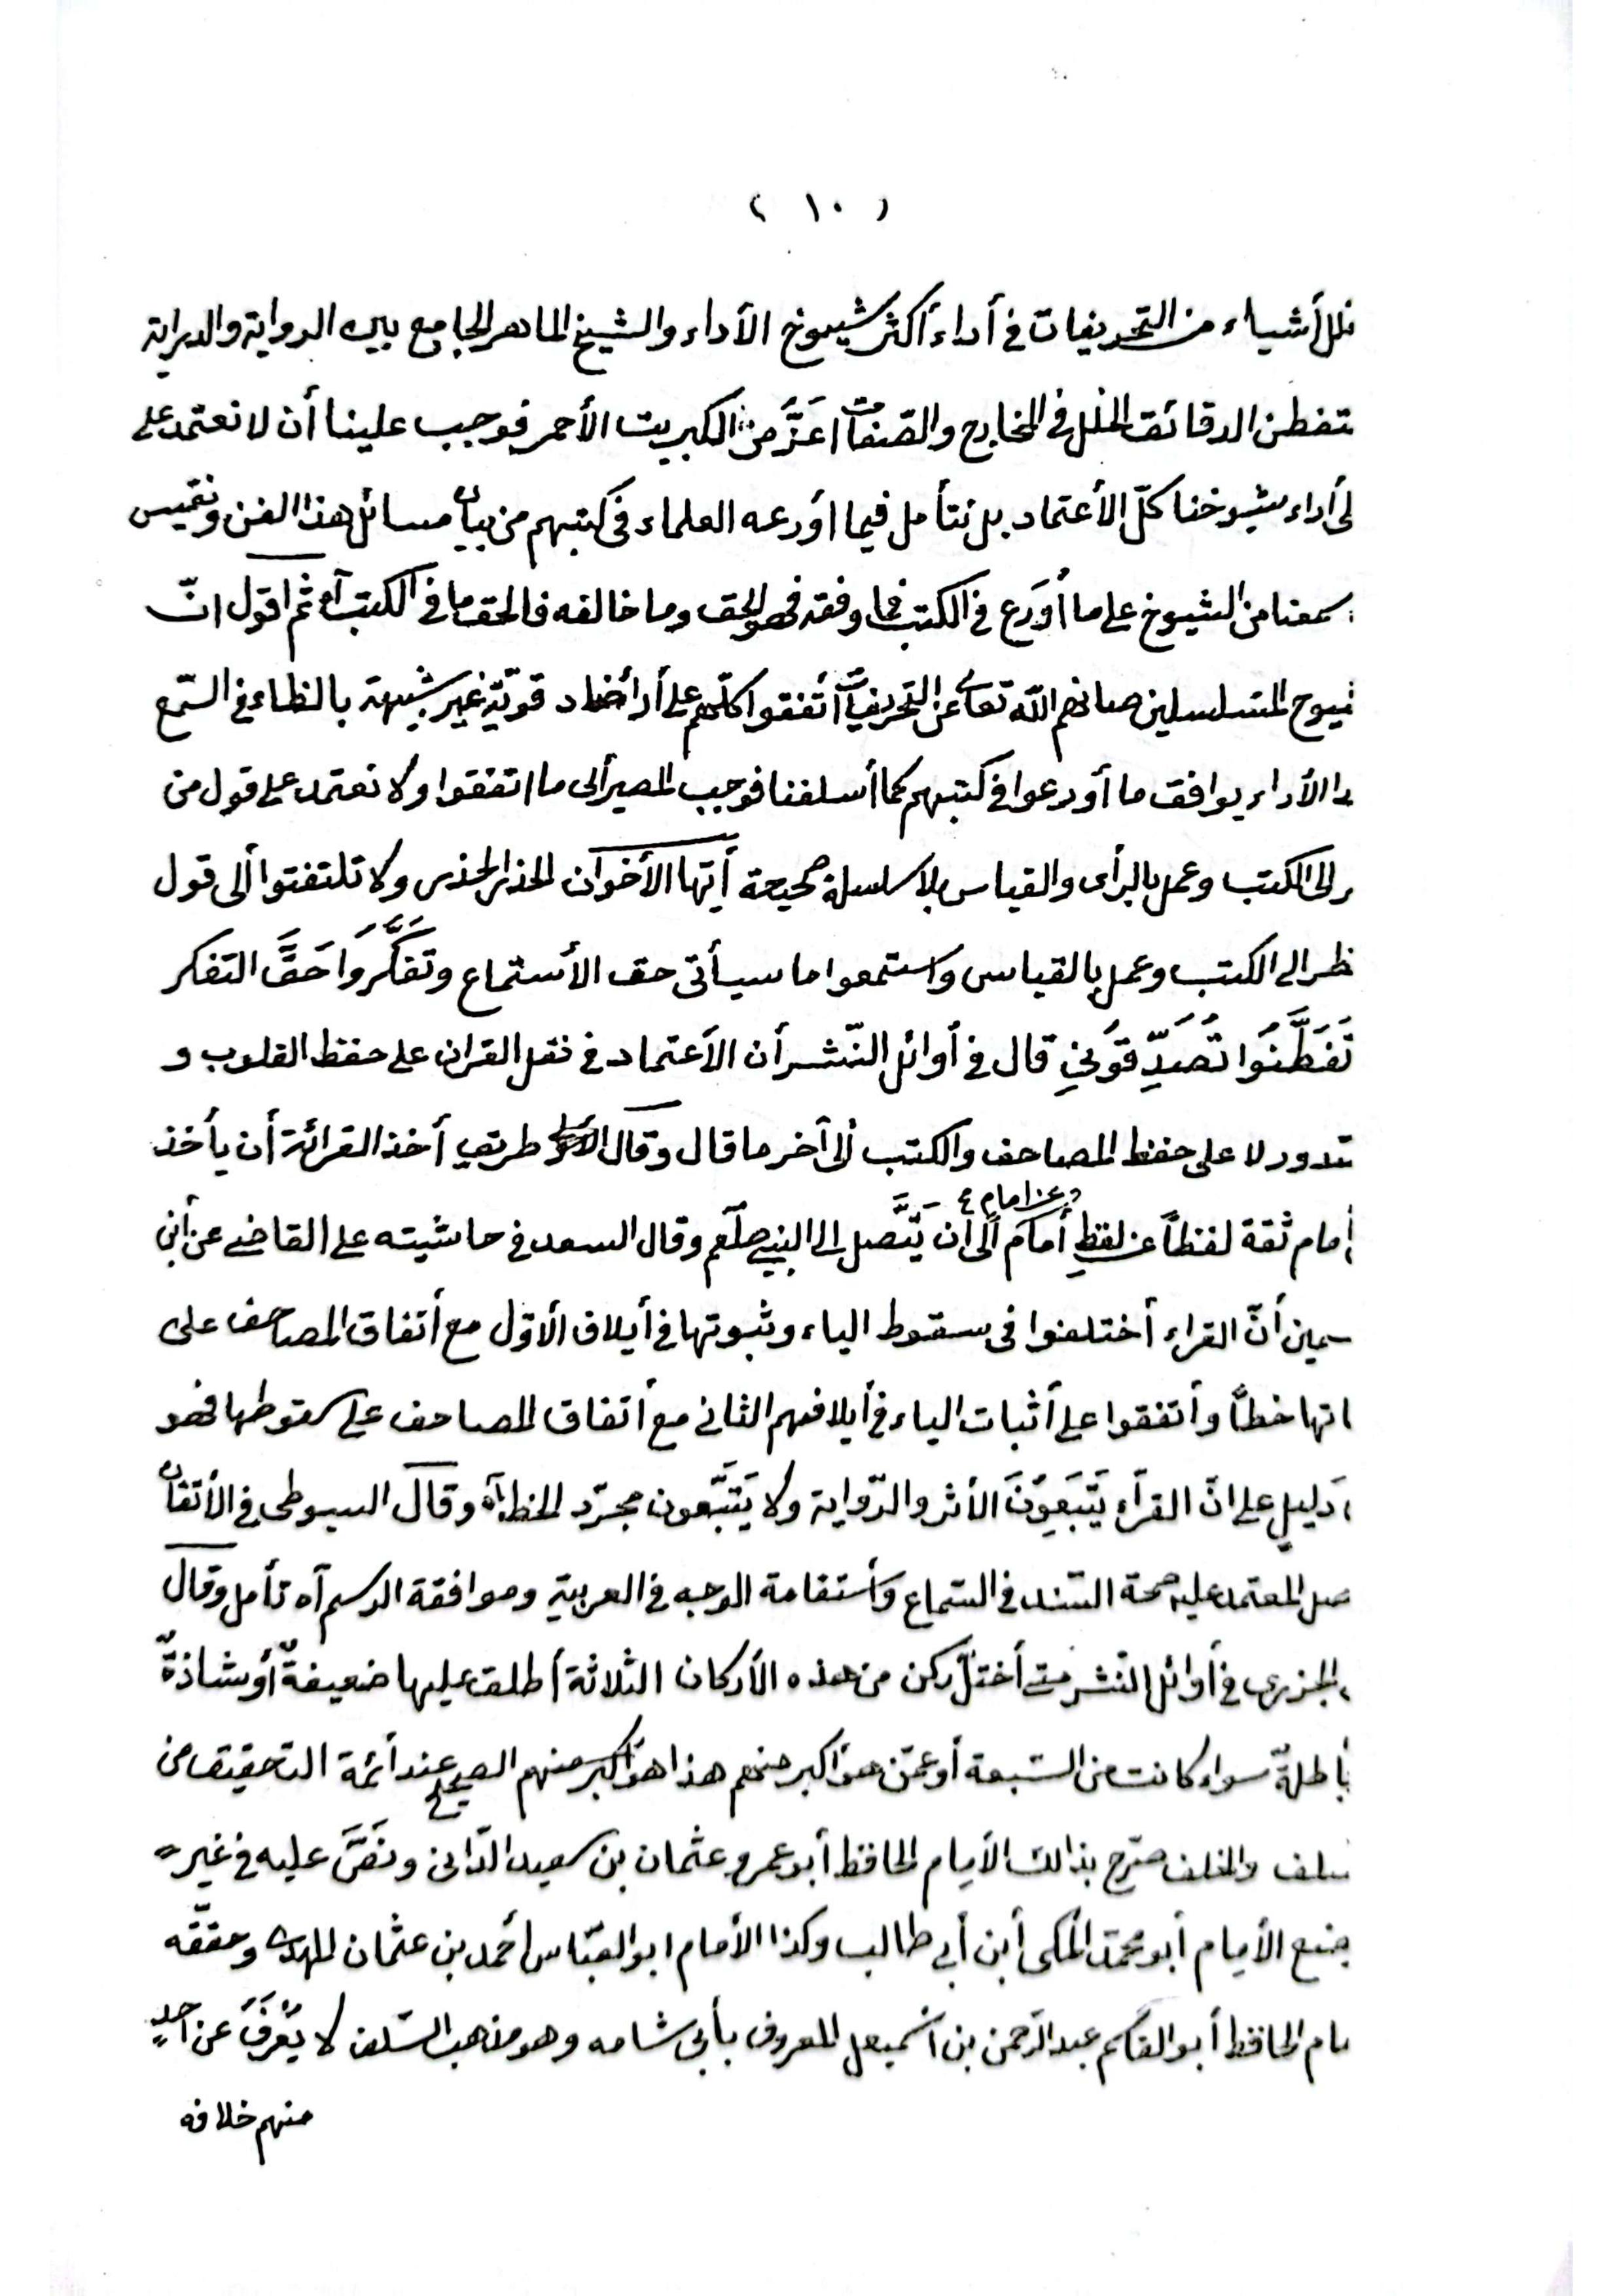 ( ١٠ )
أشياء من التحريفات في أداء أكثر شيوخ الأداء والشيخ الماهر الجامع بين الرواية والدراية
تفطن الدقائق الخلل في المخارج والصّفات اعَزَّ من الكبريت الأحمر فوجب علينا أن لا نعتمد على
لى أداء شيوخنا كلّ الأعتماد بل نتأمل فيما اَودعه العلماء في كتبهم من بيان مسائل هذا الفن ونقيس
سمعنا من الشيوخ على ما أودع في الكتب فما وفقه فهو الحق وما خالفه فالحق ما في الكتب آه ثم اقول انّ
يوخ المتسلسلين صانهم اللّه تعالى عن التحريفات أتفقوا كلّهم على أدأ ضاد قويّة غير شبيهة بالظاء في السّمع
الأداء يوافق ما أودعوا في كتبهم كما أسلفنا فوجب المصير ألى ما اتفقوا ولا نعتمد على قول من
ر الى الكتب وعمل بالرأى والقياس بلا سلسلة صحيحة أيّها الأخوان الحذر الحذر ولا تلتفتوا ألى قول
ظر الى الكتب وعمل بالقياس واستمعوا ما سيأتى حق الأستماع وتَفَكَّرُوا حَقَّ التفكر
تَفَطَّنُوا تُصَدِّقُونِي قال في أوائل النّشر أن الأعتماد في نقل القران على حفظ القلوب و
دور لا على حفظ المصاحف والكتب ألى آخر ما قال وقال طريق أخذ القرائة أن يأخذ
إمام ثقة لفظاً عن لفظِ أمام عن امام ألى ان يَتَّصل الى النبي صلّعم وقال السعد في حاشيته على القاضى عن أبن
سمين أنّ القراء أختلفوا فى سقوط الياء وثبوتها في أيلاف الأوّل مع أتفاق المصاحف على
اتها خطاً وأتفقوا على أثبات الياء في أيلافهم الثانى مع أتفاق المصاحف على سقوطها فهو
دَليل على انّ القرآء يَتَّبَعِونَ الأثر والرّواية ولا يَتَّبّعون مجرّد الخط آه وقال السيوطى في الأتقان
صل المعتمد عليه صحة السّند في السّماع وأستقامة الوجه في العربية وموافقة الرسم آه تأمل وقال
الجزرى في أوائل النّشر متى أختلّ ركن من هذه الأركان الثلاثة أطلق عليها ضعيفةٌ أو شاذةٌ
باطلةٌ سواء كانت من السّبعة أو عمّن هو أكبر منهم هذا هو الصحيح عند أئمة التحقيق من
سلف والخلف صرّح بذالك الأِمام الحافظ أبو عمرو عثمان بن سعيد الدّانى ونَصَّ عليه في غير
ضع الأِمام أبو محمّد المكى أبن أبي طالب وكذا الأمام ابو العبّاس أحمد بن عثمان المهدى وحقّقه
مام الحافظ أبو القاسم عبد الرّحمن بن أسمٰعيل المعروف بأبى شامه وهو مذهب السّلف لا يُعْرَفُ عن احدٍ
منهم خلافه